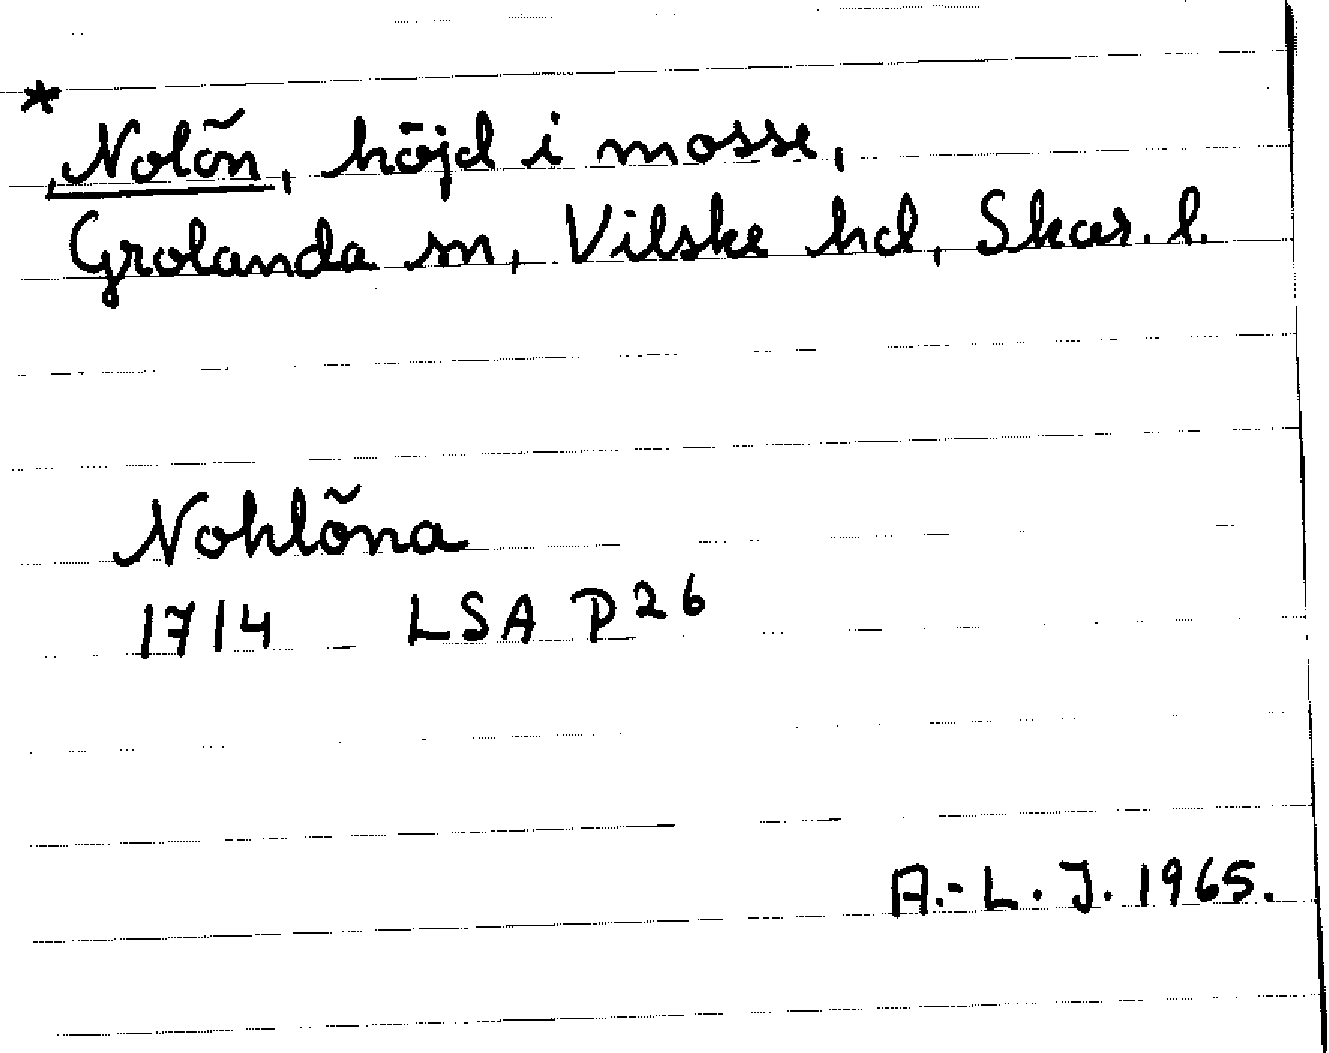 * Nolön, höjd i mosse,
Grolanda sn, Vilske hd, Skar. l.
Nohlöna
1714 LSA P26
A.-L. J. 1965.